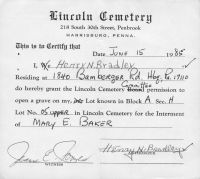 Lincoln Cemetery
218 South 30th Street, Penbrook
HARRISBURG, PENNA.
This is to Certify that
Date June 15 1985
I, We Henry N. Bradley
Residing at 1840 Bamberger Rd. Hbg. Pa. 17110
Committee
do hereby grant the Lincoln Cemetery permission to
open a grave on my, Lot known in Block A Sec. H
Lot No. upper in Lincoln Cemetery for the Interment
of Mary E. Baker
Henry N. Bradley
WITNESS